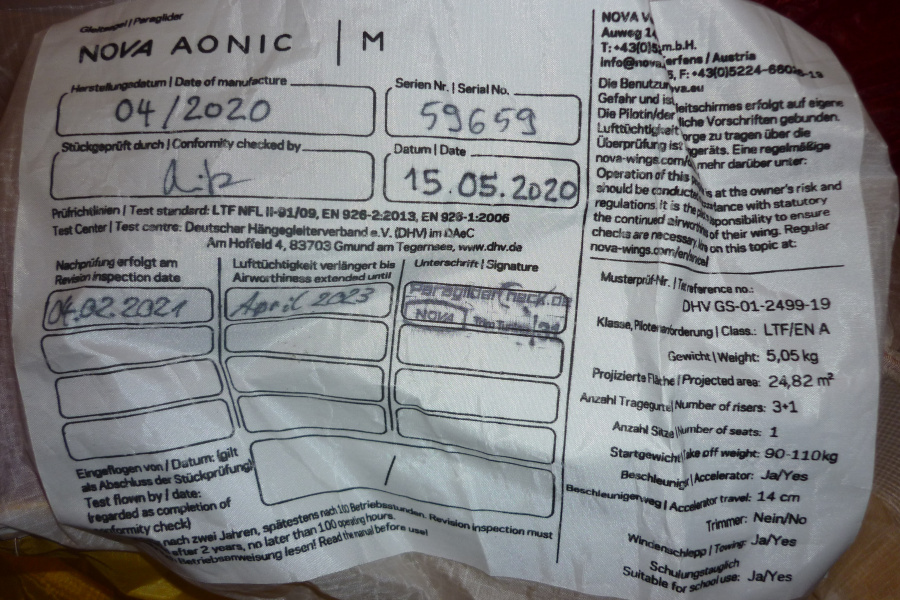 Gleitsegel | Paraglider
NOVA AONIC | M
Herstellungsdatum | Date of manufacture
04/2020
Serien Nr. | Serial No.
59659
Stückgeprüft durch | Conformity checked by
Datum | Date
15.05.2020
Prüfrichtlinien | Test standard: LTF NFL II-91/09, EN 926-2:2013, EN 926-1:2006
Test Center | Test centre: Deutscher Hängegleiterverband e.V. (DHV) im DAeC
Am Hoffeld 4, 83703 Gmund am Tegernsee, www.dhv.de
Nachprüfung erfolgt am
Revision inspection date
Lufttüchtigkeit verlängert bis
Airworthiness extended until
Unterschrift | Signature
04.02.2021
April 2023
Paraglidercheck.de
NOVA
Eingeflogen von / Datum: (gilt
als Abschluss der Stückprüfung)
Test flown by / date:
(regarded as completion of
formity check)
/
nach zwei Jahren, spätestens nach 100 Betriebsstunden. Revision inspection must
after 2 years, no later than 100 operating hours.
Betriebsanweisung lesen! Read the manual before use!
NOVA V
Auweg 14
m.b.H.
T: +43(0)5
erfens / Austria
info@nova
F: +43(0)5224-660
wa.eu
Die Benutzun
leitschirmes erfolgt auf eigene
Gefahr und ist
liche Vorschriften gebunden.
Die Pilotin/der
orge zu tragen über die
Lufttüchtigkeit
geräts. Eine regelmäßige
Überprüfung ist
mehr darüber unter:
nova-wings.com/
Operation of this
s at the owner's risk and
should be conducte
dance with statutory
regulations. It is the
sponsibility to ensure
the continued airworth
of their wing. Regular
checks are necessary,
on this topic at:
nova-wings.com/en/
Musterprüf-Nr. | T reference no.:
DHV GS-01-2499-19
Klasse, Pilotenanforderung | Class.: LTF/EN A
Gewicht | Weight: 5,05 kg
Projizierte Fläche | Projected area: 24,82 m²
Anzahl Tragegurte | Number of risers: 3+1
Anzahl Sitze | Number of seats: 1
Startgewicht | Take off weight: 90-110kg
Beschleunig | Accelerator: Ja/Yes
Beschleunigerweg | Accelerator travel: 14 cm
Trimmer: Nein/No
Windenschlepp | Towing: Ja/Yes
Schulungstauglich
Suitable for school use: Ja/Yes